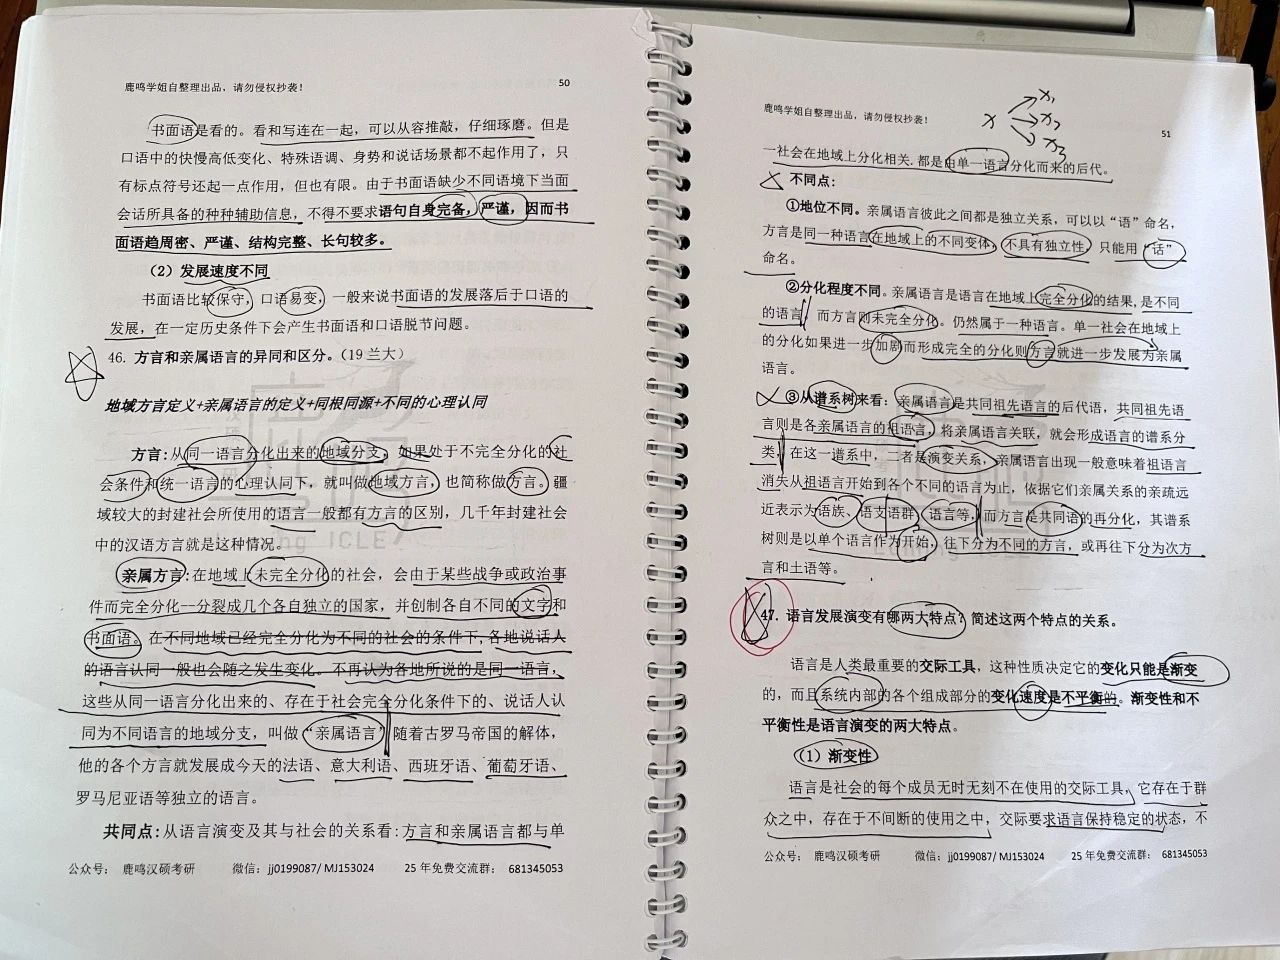 鹿鸣学姐自整理出品，请勿侵权抄袭！
50
书面语是看的。看和写连在一起，可以从容推敲，仔细琢磨。但是
口语中的快慢高低变化、特殊语调、身势和说话场景都不起作用了，只
有标点符号还起一点作用，但也有限。由于书面语缺少不同语境下当面
会话所具备的种种辅助信息，不得不要求语句自身完备，严谨，因而书
面语趋周密、严谨、结构完整、长句较多。
（2）发展速度不同
书面语比较保守，口语易变，一般来说书面语的发展落后于口语的
发展，在一定历史条件下会产生书面语和口语脱节问题。
46. 方言和亲属语言的异同和区分。（19 兰大）
地域方言定义+亲属语言的定义+同根同源+不同的心理认同
方言：从同一语言分化出来的地域分支，如果处于不完全分化的社
会条件和统一语言的心理认同下，就叫做地域方言，也简称做方言。疆
域较大的封建社会所使用的语言一般都有方言的区别，几千年封建社会
中的汉语方言就是这种情况。
亲属方言：在地域上未完全分化的社会，会由于某些战争或政治事
件而完全分化--分裂成几个各自独立的国家，并创制各自不同的文字和
书面语。在不同地域已经完全分化为不同的社会的条件下，各地说话人
的语言认同一般也会随之发生变化。不再认为各地所说的是同一语言，
这些从同一语言分化出来的、存在于社会完全分化条件下的、说话人认
同为不同语言的地域分支，叫做“亲属语言”随着古罗马帝国的解体，
他的各个方言就发展成今天的法语、意大利语、西班牙语、葡萄牙语、
罗马尼亚语等独立的语言。
共同点：从语言演变及其与社会的关系看：方言和亲属语言都与单
公众号： 鹿鸣汉硕考研 微信：jj0199087/ MJ153024 25 年免费交流群： 681345053
鹿鸣学姐自整理出品，请勿侵权抄袭！
51
x x₁ x₂ x₃
一社会在地域上分化相关.都是由单一语言分化而来的后代。
不同点：
①地位不同。亲属语言彼此之间都是独立关系，可以以“语”命名，
方言是同一种语言在地域上的不同变体，不具有独立性，只能用“话”
命名。
②分化程度不同。亲属语言是语言在地域上完全分化的结果，是不同
的语言，而方言则未完全分化。仍然属于一种语言。单一社会在地域上
的分化如果进一步加剧而形成完全的分化则方言就进一步发展为亲属
语言。
③从谱系树来看：亲属语言是共同祖先语言的后代语，共同祖先语
言则是各亲属语言的祖语言，将亲属语言关联，就会形成语言的谱系分
类，在这一谱系中，二者是演变关系，亲属语言出现一般意味着祖语言
消失从祖语言开始到各个不同的语言为止，依据它们亲属关系的亲疏远
近表示为语族、语支语群、语言等，而方言是共同语的再分化，其谱系
树则是以单个语言作为开始，往下分为不同的方言，或再往下分为次方
言和土语等。
47. 语言发展演变有哪两大特点？简述这两个特点的关系。
语言是人类最重要的交际工具，这种性质决定它的变化只能是渐变
的，而且系统内部的各个组成部分的变化速度是不平衡的。渐变性和不
平衡性是语言演变的两大特点。
（1）渐变性
语言是社会的每个成员无时无刻不在使用的交际工具，它存在于群
众之中，存在于不间断的使用之中，交际要求语言保持稳定的状态，不
公众号： 鹿鸣汉硕考研 微信：jj0199087/ MJ153024 25 年免费交流群： 681345053